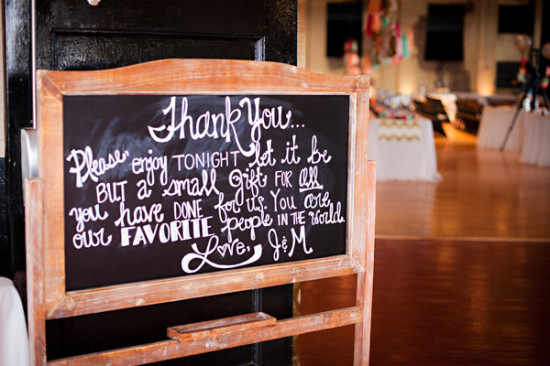 Thank You...
Please, enjoy TONIGHT let it be
BUT a small gift FOR all
you have DONE for us. You are
our FAVORITE people IN THE world.
Love, J&M